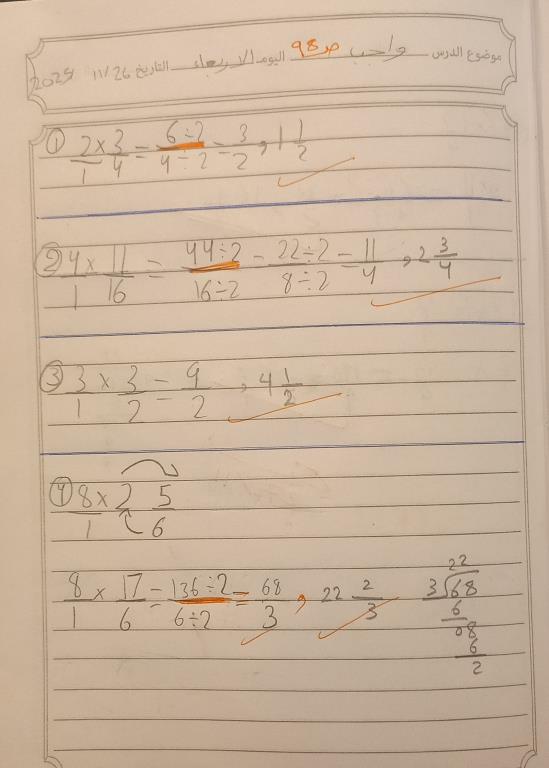 موضوع الدرس واجب ص 98 اليوم الاربعاء التاريخ 11/26 2025
① 2/1 × 3/4 = 6÷2/4÷2 = 3/2 , 1 1/2
② 4/1 × 11/16 = 44÷2/16÷2 = 22÷2/8÷2 = 11/4 , 2 3/4
③ 3/1 × 3/2 = 9/2 , 4 1/2
④ 8/1 × 2 5/6
8/1 × 17/6 = 136÷2/6÷2 = 68/3 , 22 2/3
22
3√68
6
08
6
2